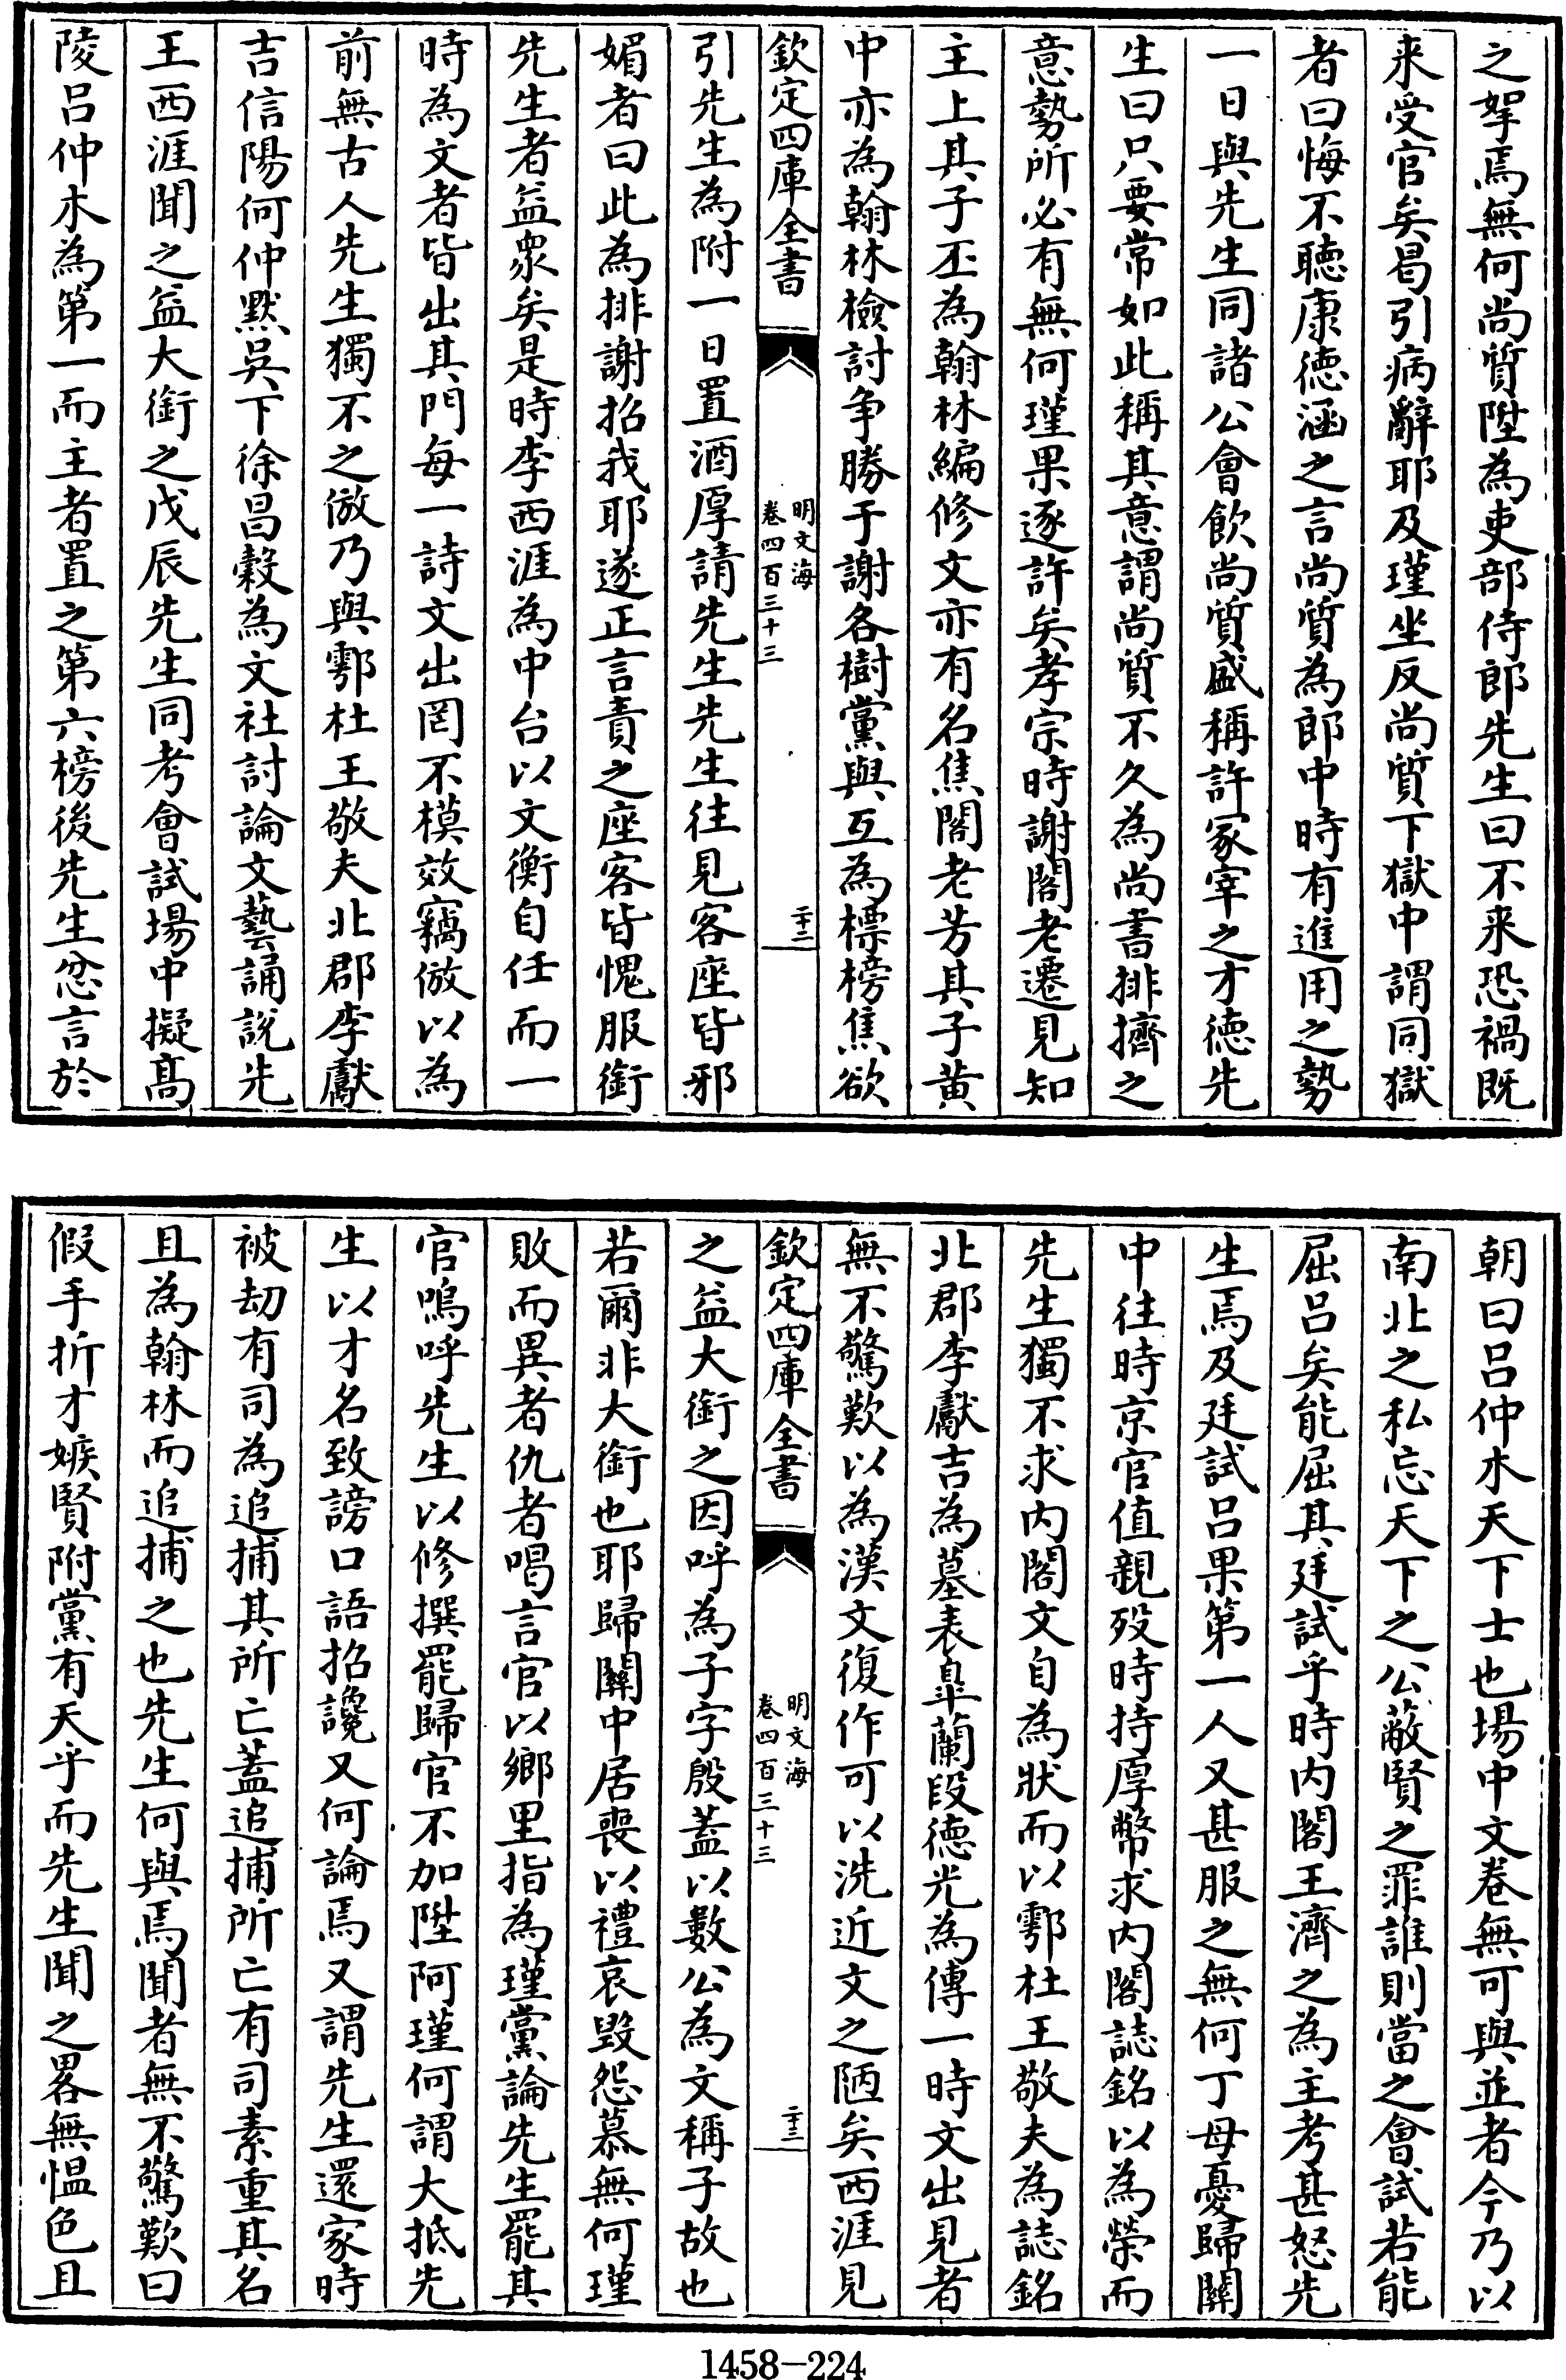 之拏焉無何尚質陞為吏部侍郎先生曰不来恐禍既
来受官矣曷引病辭耶及瑾坐反尚質下獄中謂同獄
者曰悔不聴康徳涵之言尚質為郎中時有進用之勢
一日與先生同諸公會飲尚質盛稱許冢宰之才徳先
生曰只要常如此稱其意謂尚質不久為尚書排擠之
意勢所必有無何瑾果逐許矣孝宗時謝閣老遷見知
主上其子丕為翰林編修文亦有名焦閣老芳其子黄
中亦為翰林檢討争勝于謝各樹黨與互為標榜焦欲
欽定四庫全書
明文海
卷四百三十三
二十二
引先生為附一日置酒厚請先生先生往見客座皆邪
媚者曰此為排謝招我耶遂正言責之座客皆愧服銜
先生者益衆矣是時李西涯為中台以文衡自任而一
時為文者皆出其門每一詩文出罔不模效竊倣以為
前無古人先生獨不之倣乃與鄠杜王敬夫北郡李獻
吉信陽何仲默吳下徐昌穀為文社討論文藝誦說先
王西涯聞之益大銜之戊辰先生同考會試場中擬高
陵呂仲木為第一而主者置之第六榜後先生忿言於
朝曰呂仲木天下士也場中文卷無可與並者今乃以
南北之私忘天下之公蔽賢之罪誰則當之會試若能
屈呂矣能屈其廷試乎時内閣王濟之為主考甚怒先
生焉及廷試呂果第一人又甚服之無何丁母憂歸關
中往時京官值親殁時持厚幣求内閣誌銘以為榮而
先生獨不求内閣文自為狀而以鄠杜王敬夫為誌銘
北郡李獻吉為墓表臯蘭段徳光為傳一時文出見者
無不驚歎以為漢文復作可以洗近文之陋矣西涯見
欽定四庫全書
明文海
卷四百三十三
二十三
之益大銜之因呼為子字股蓋以數公為文稱子故也
若爾非大銜也耶歸關中居喪以禮哀毀怨慕無何瑾
敗而異者仇者喝言官以鄉里指為瑾黨論先生罷其
官嗚呼先生以修撰罷歸官不加陞阿瑾何謂大抵先
生以才名致謗口語招讒又何論焉又謂先生還家時
被刼有司為追捕其所亡蓋追捕所亡有司素重其名
且為翰林而追捕之也先生何與焉聞者無不驚歎曰
假手折才嫉賢附黨有天乎而先生聞之畧無愠色且
1458-224